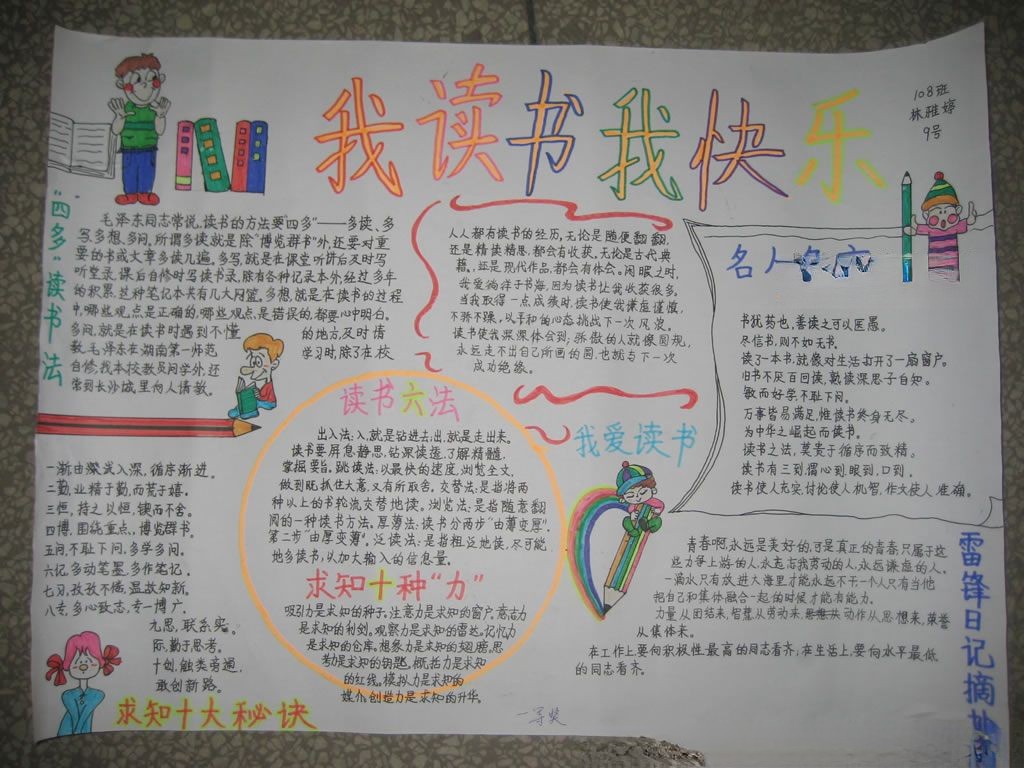 我读书我快乐
108班
林雅婷
9号
"四多"读书法
毛泽东同志常说,读书的方法要"四多"——多读、多
写、多想、多问。所谓多读就是除"博览群书"外,还要对重
要的书或文章多读几遍。多写,就是在课堂听讲后及时写
听堂录,课后自修时写读书录,除有各种记录本外,经过多年
的积累,这种笔记本共有几大网篮。多想,就是在读书的过程
中,哪些观点是正确的,哪些观点是错误的,都要心中明白。
多问,就是在读书时遇到不懂的地方及时请
教,毛泽东在湖南第一师范学习时,除了在校
自修,找本校教员问学外,还
常到长沙城里向人请教。
人人都有读书的经历,无论是随便翻翻,
还是精读精思,都会有收获。无论是古代典
籍,还是现代作品,都会有体会。闲暇之时,
我爱徜徉于书海,因为读书让我收获很多。
当我取得一点成绩时,读书使我谦虚谨慎,
不骄不躁,以平和的心态挑战下一次风浪。
读书使我深深体会到:骄傲的人就像圆规,
永远走不出自己所画的圆,也就与下一次
成功绝缘。
我爱读书
名人名言
书犹药也,善读之可以医愚。
尽信书,则不如无书。
读了一本书,就像对生活打开了一扇窗户。
旧书不厌百回读,熟读深思子自知。
敏而好学不耻下问。
万事皆易满足,惟读书终身无尽。
为中华之崛起而读书。
读书之法,莫贵于循序而致精。
读书有三到谓心到,眼到,口到。
读书使人充实,讨论使人机智,作文使人准确。
读书六法
出入法:入,就是钻进去;出,就是走出来。
读书要屏息静思,钻深读透,了解精髓,
掌握要旨。跳读法:以最快的速度,浏览全文,
做到既抓住大意,又有所取舍。交替法:是指将两
种以上的书轮流交替地读。浏览法:是指随意翻
阅的一种读书方法。厚薄法:读书分两步"由薄变厚"。
第二步"由厚变薄"。泛读法:是指粗泛地读,尽可能
地多读书,以加大输入的信息量。
求知十种"力"
吸引力是求知的种子。注意力是求知的窗户。意志力
是求知的利剑。观察力是求知的雷达。记忆力
是求知的仓库。想象力是求知的翅膀。思
考力是求知的钥匙。概括力是求知
的红线。模拟力是求知的
媒介。创造力是求知的升华。
一渐,由浅入深,循序渐进。
二勤,业精于勤,而荒于嬉。
三恒,持之以恒,锲而不舍。
四博,围绕重点,博览群书。
五问,不耻下问,多学多问。
六记,多动笔墨,多作笔记。
七习,孜孜不倦,温故知新。
八专,多心致志,专一博广。
九思,联系实
际,勤于思考。
十创,触类旁通,
敢创新路。
求知十大秘诀
青春啊,永远是美好的,可是真正的青春只属于这
些力争上游的人,永远忘我劳动的人,永远谦虚的人。
一滴水只有放进大海里才能永远不干一个人只有当他
把自己和集体融合一起的时候才能有能力。
力量从团结来,智慧从劳动来,动作从思想来,荣誉
从集体来。
在工作上,要向积极性最高的同志看齐,在生活上,要向水平最低
的同志看齐。
雷锋日记摘抄
一等奖